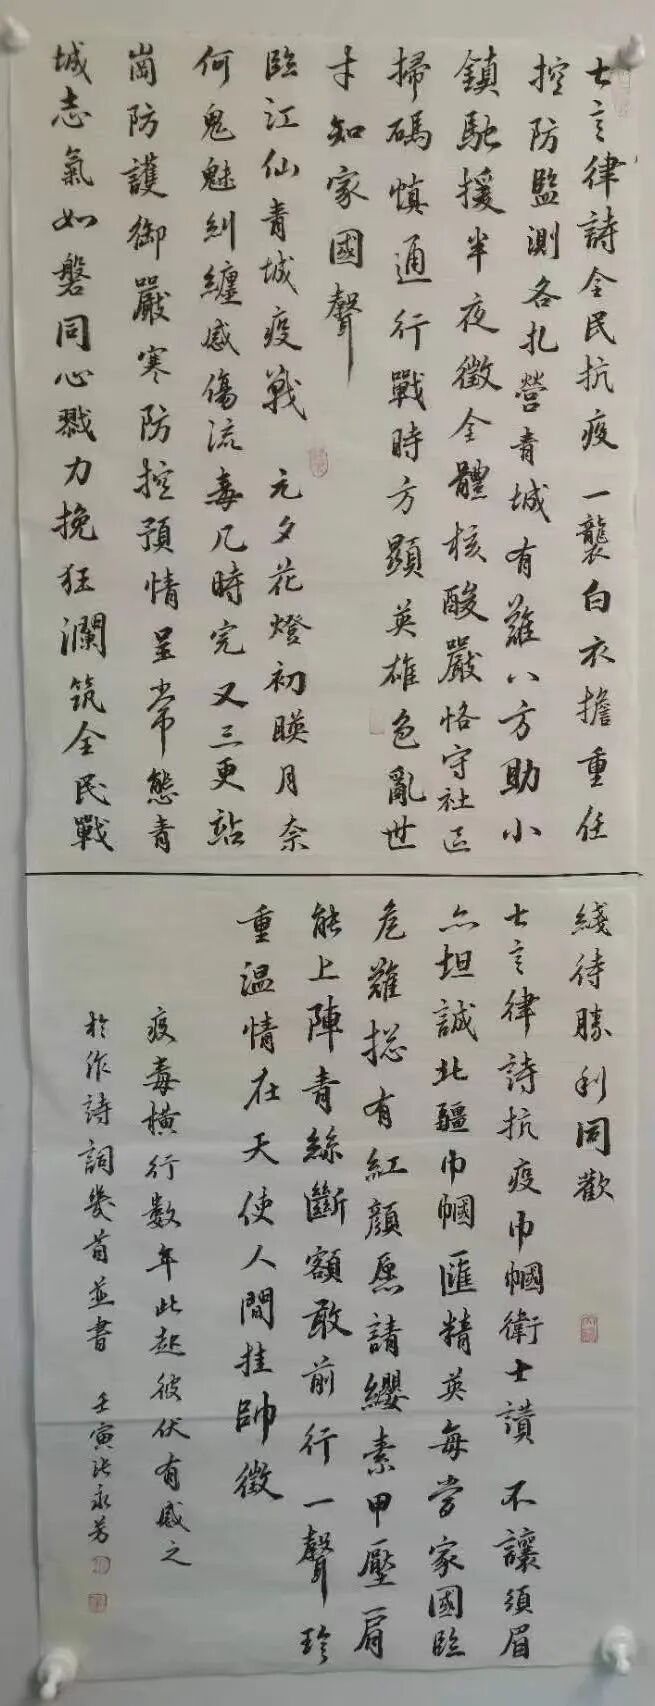 七言律詩全民抗疫 一襲白衣擔重任
控防監測各扎營青城有難八方助小
鎮馳援半夜徵全體核酸嚴恪守社區
掃碼慎通行戰時方顯英雄色亂世
才知家國聲
臨江仙青城疫戰 元夕花燈初暎月奈
何鬼魅糾纏感傷流毒几時完又三更站
崗防護御嚴寒防控預情呈常態青
城志氣如磐同心戮力挽狂瀾筑全民戰
綫待勝利同歡
七言律詩抗疫巾幗衛士讚 不讓須眉
亦坦誠北疆巾幗匯精英每當家國臨
危難總有紅顏愿請纓素甲壓肩
能上陣青絲斷額敢前行一聲珍
重溫情在天使人間挂帥徵
疫毒橫行数年此起彼伏有感之
於作詩詞幾首並書 壬寅張永芳